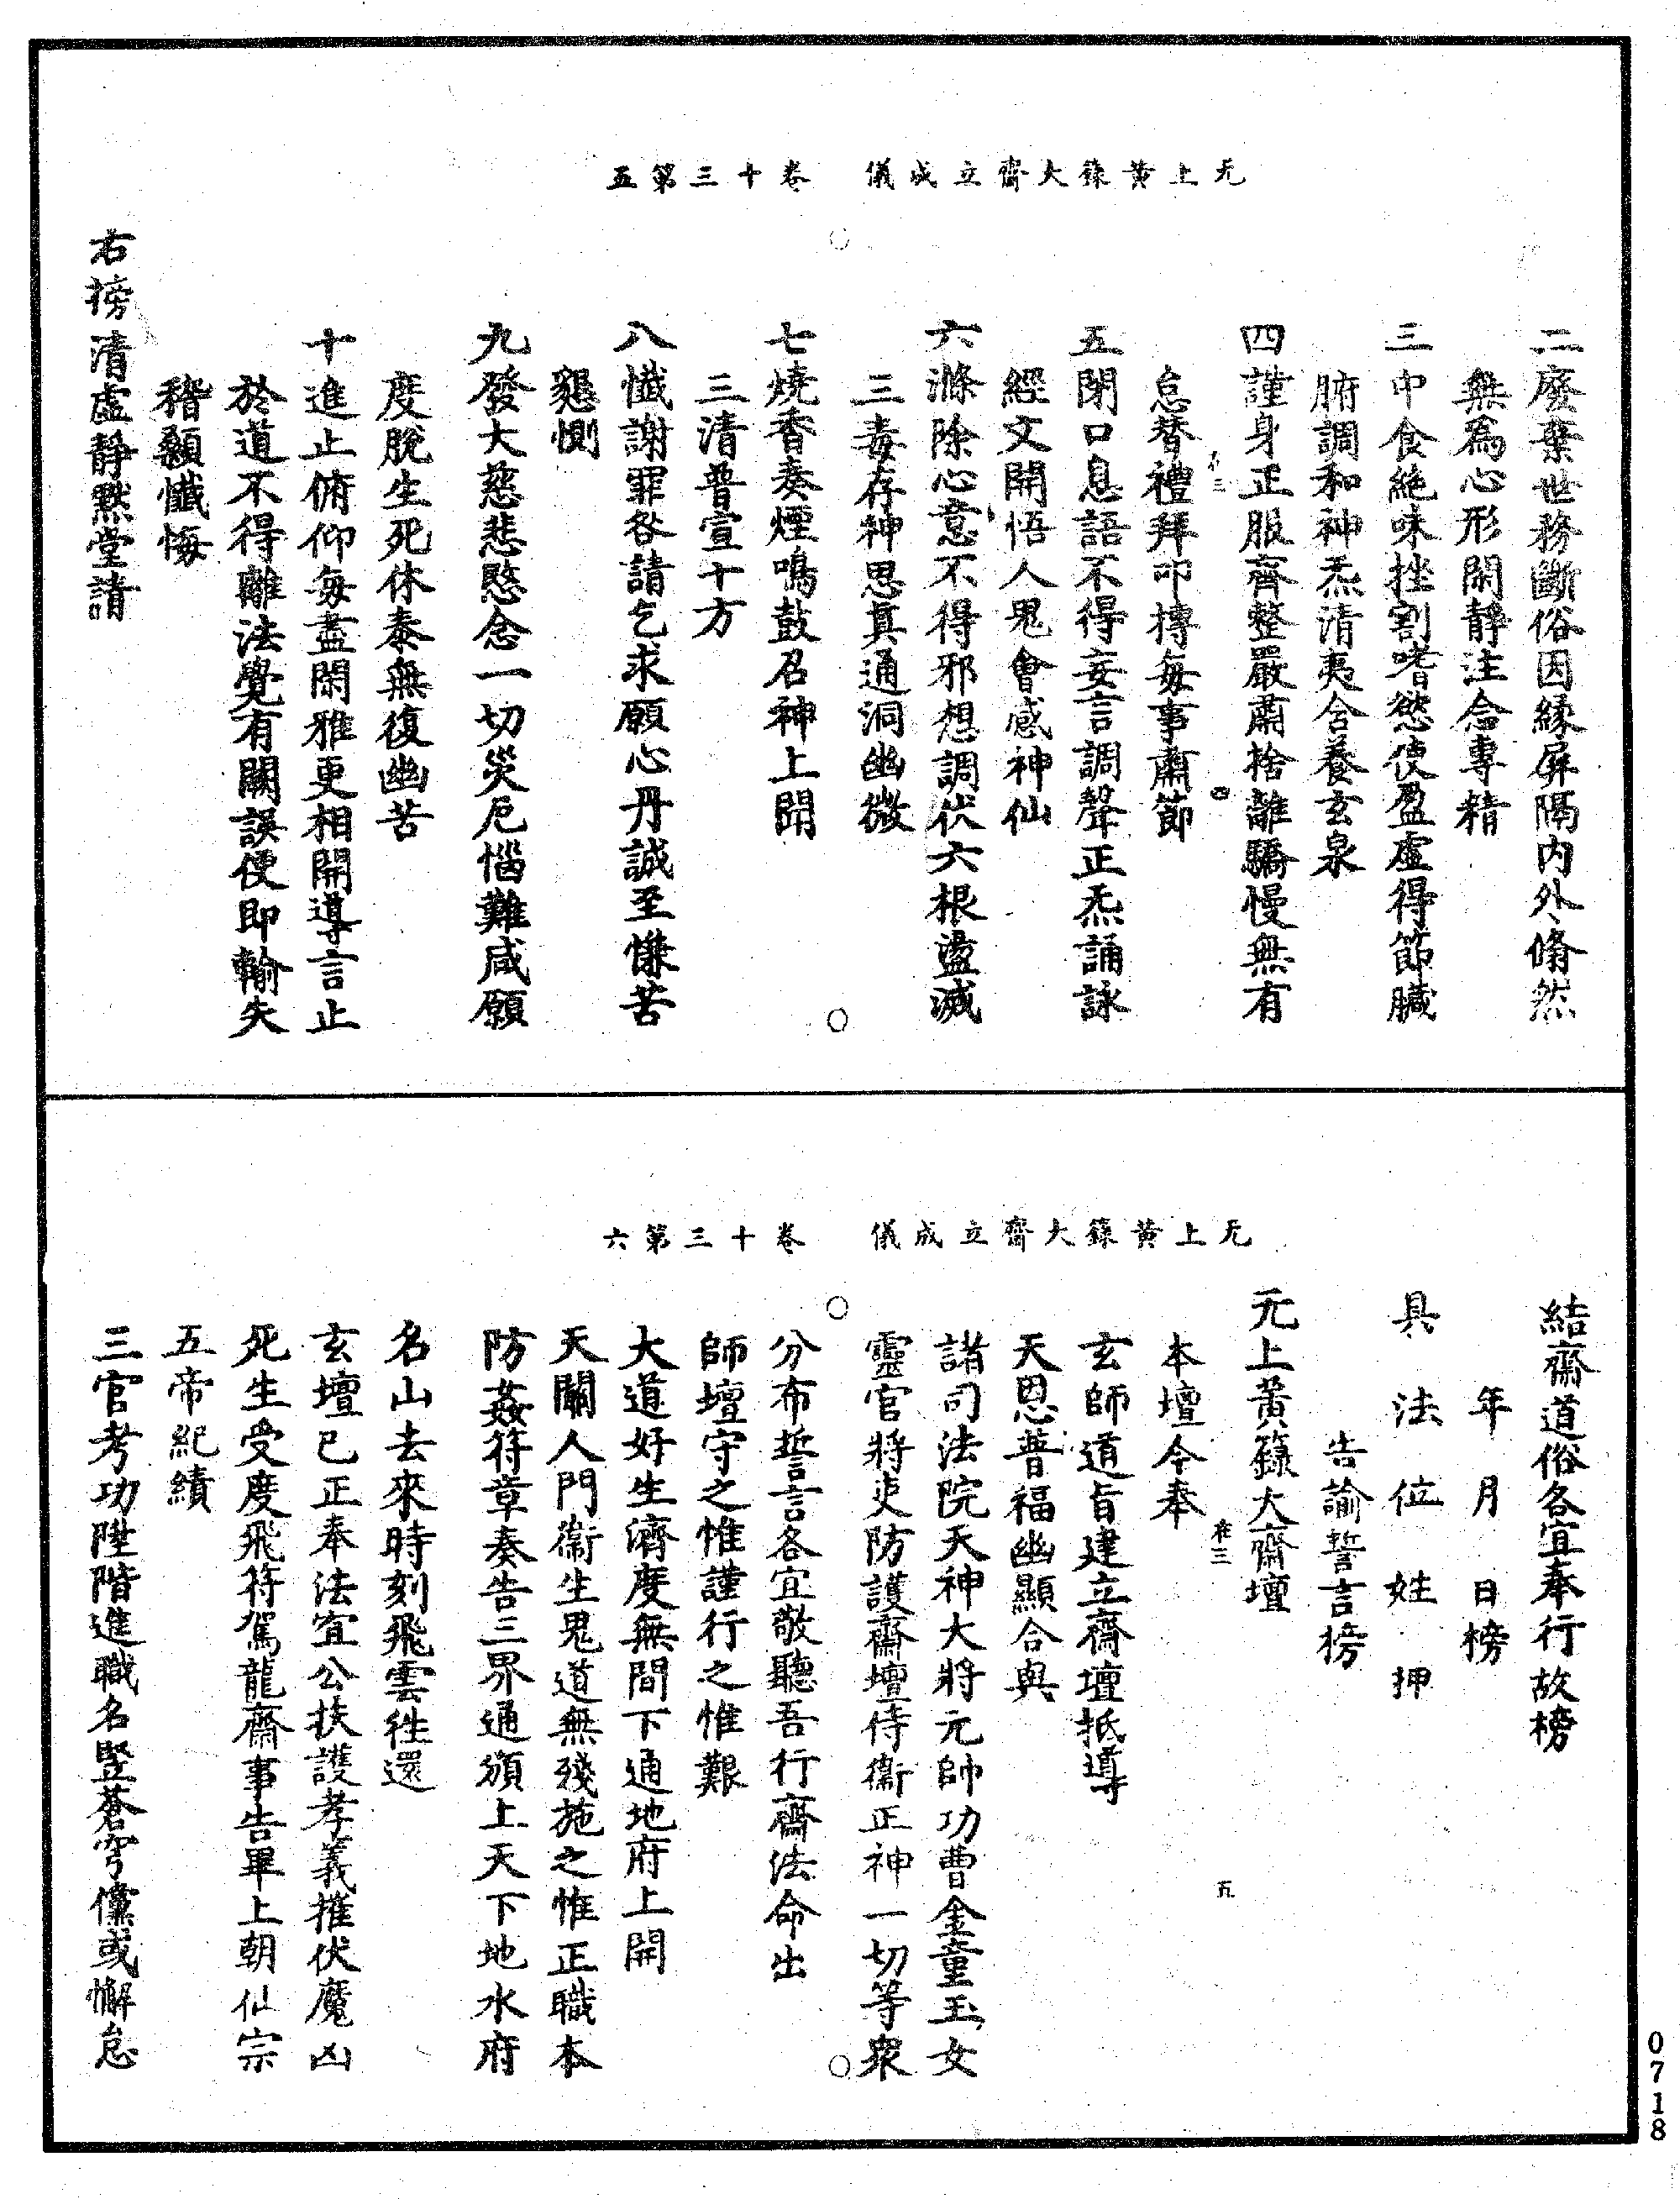 无上黃籙大齋立成儀　卷十三第五
二廢棄世務斷俗因緣屏隔內外翛然
無為心形閑靜注念專精
三中食絕味挫割嗜慾使盈虛得節臟
腑調和神炁清夷含養玄泉
四謹身正服齊整嚴肅捨離驕慢無有
怠替禮拜叩摶每事肅節
五閉口息語不得妄言調聲正炁誦詠
經文開悟人鬼會感神仙
六滌除心意不得邪想調伏六根盪滅
三毒存神思真通洞幽微
七燒香奏煙鳴鼓召神上聞
三清普宣十方
八懺謝罪咎請乞求願心丹誠至慊苦
懇惻
九發大慈悲愍念一切災厄惱難咸願
度脫生死休泰無復幽苦
十進止俯仰每盡閑雅更相開導言止
於道不得離法覺有闕誤便即輸失
稽顙懺悔
右榜清虛靜默堂請
无上黃籙大齋立成儀　卷十三第六
結齋道俗各宜奉行故榜
年　月　日榜
具　法　位　姓　押
告諭誓言榜
无上黃籙大齋壇
本壇今奉
在三　五
玄師道旨建立齋壇抵導
天恩普福幽顯合與
諸司法院天神大將元帥功曹金童玉女
靈官將吏防護齋壇侍衞正神一切等衆
分布誓言各宜敬聽吾行齋法命出
師壇守之惟謹行之惟艱
大道好生濟度無間下通地府上開
天關人門衞生鬼道無殘施之惟正職本
防姦符章奏告三界通頒上天下地水府
名山去來時刻飛雲往還
玄壇已正奉法宜公扶護孝義摧伏魔凶
死生受度飛符駕龍齋事告畢上朝仙宗
五帝紀績
三官考功陞階進職名竪蒼穹儻或懈怠
0718